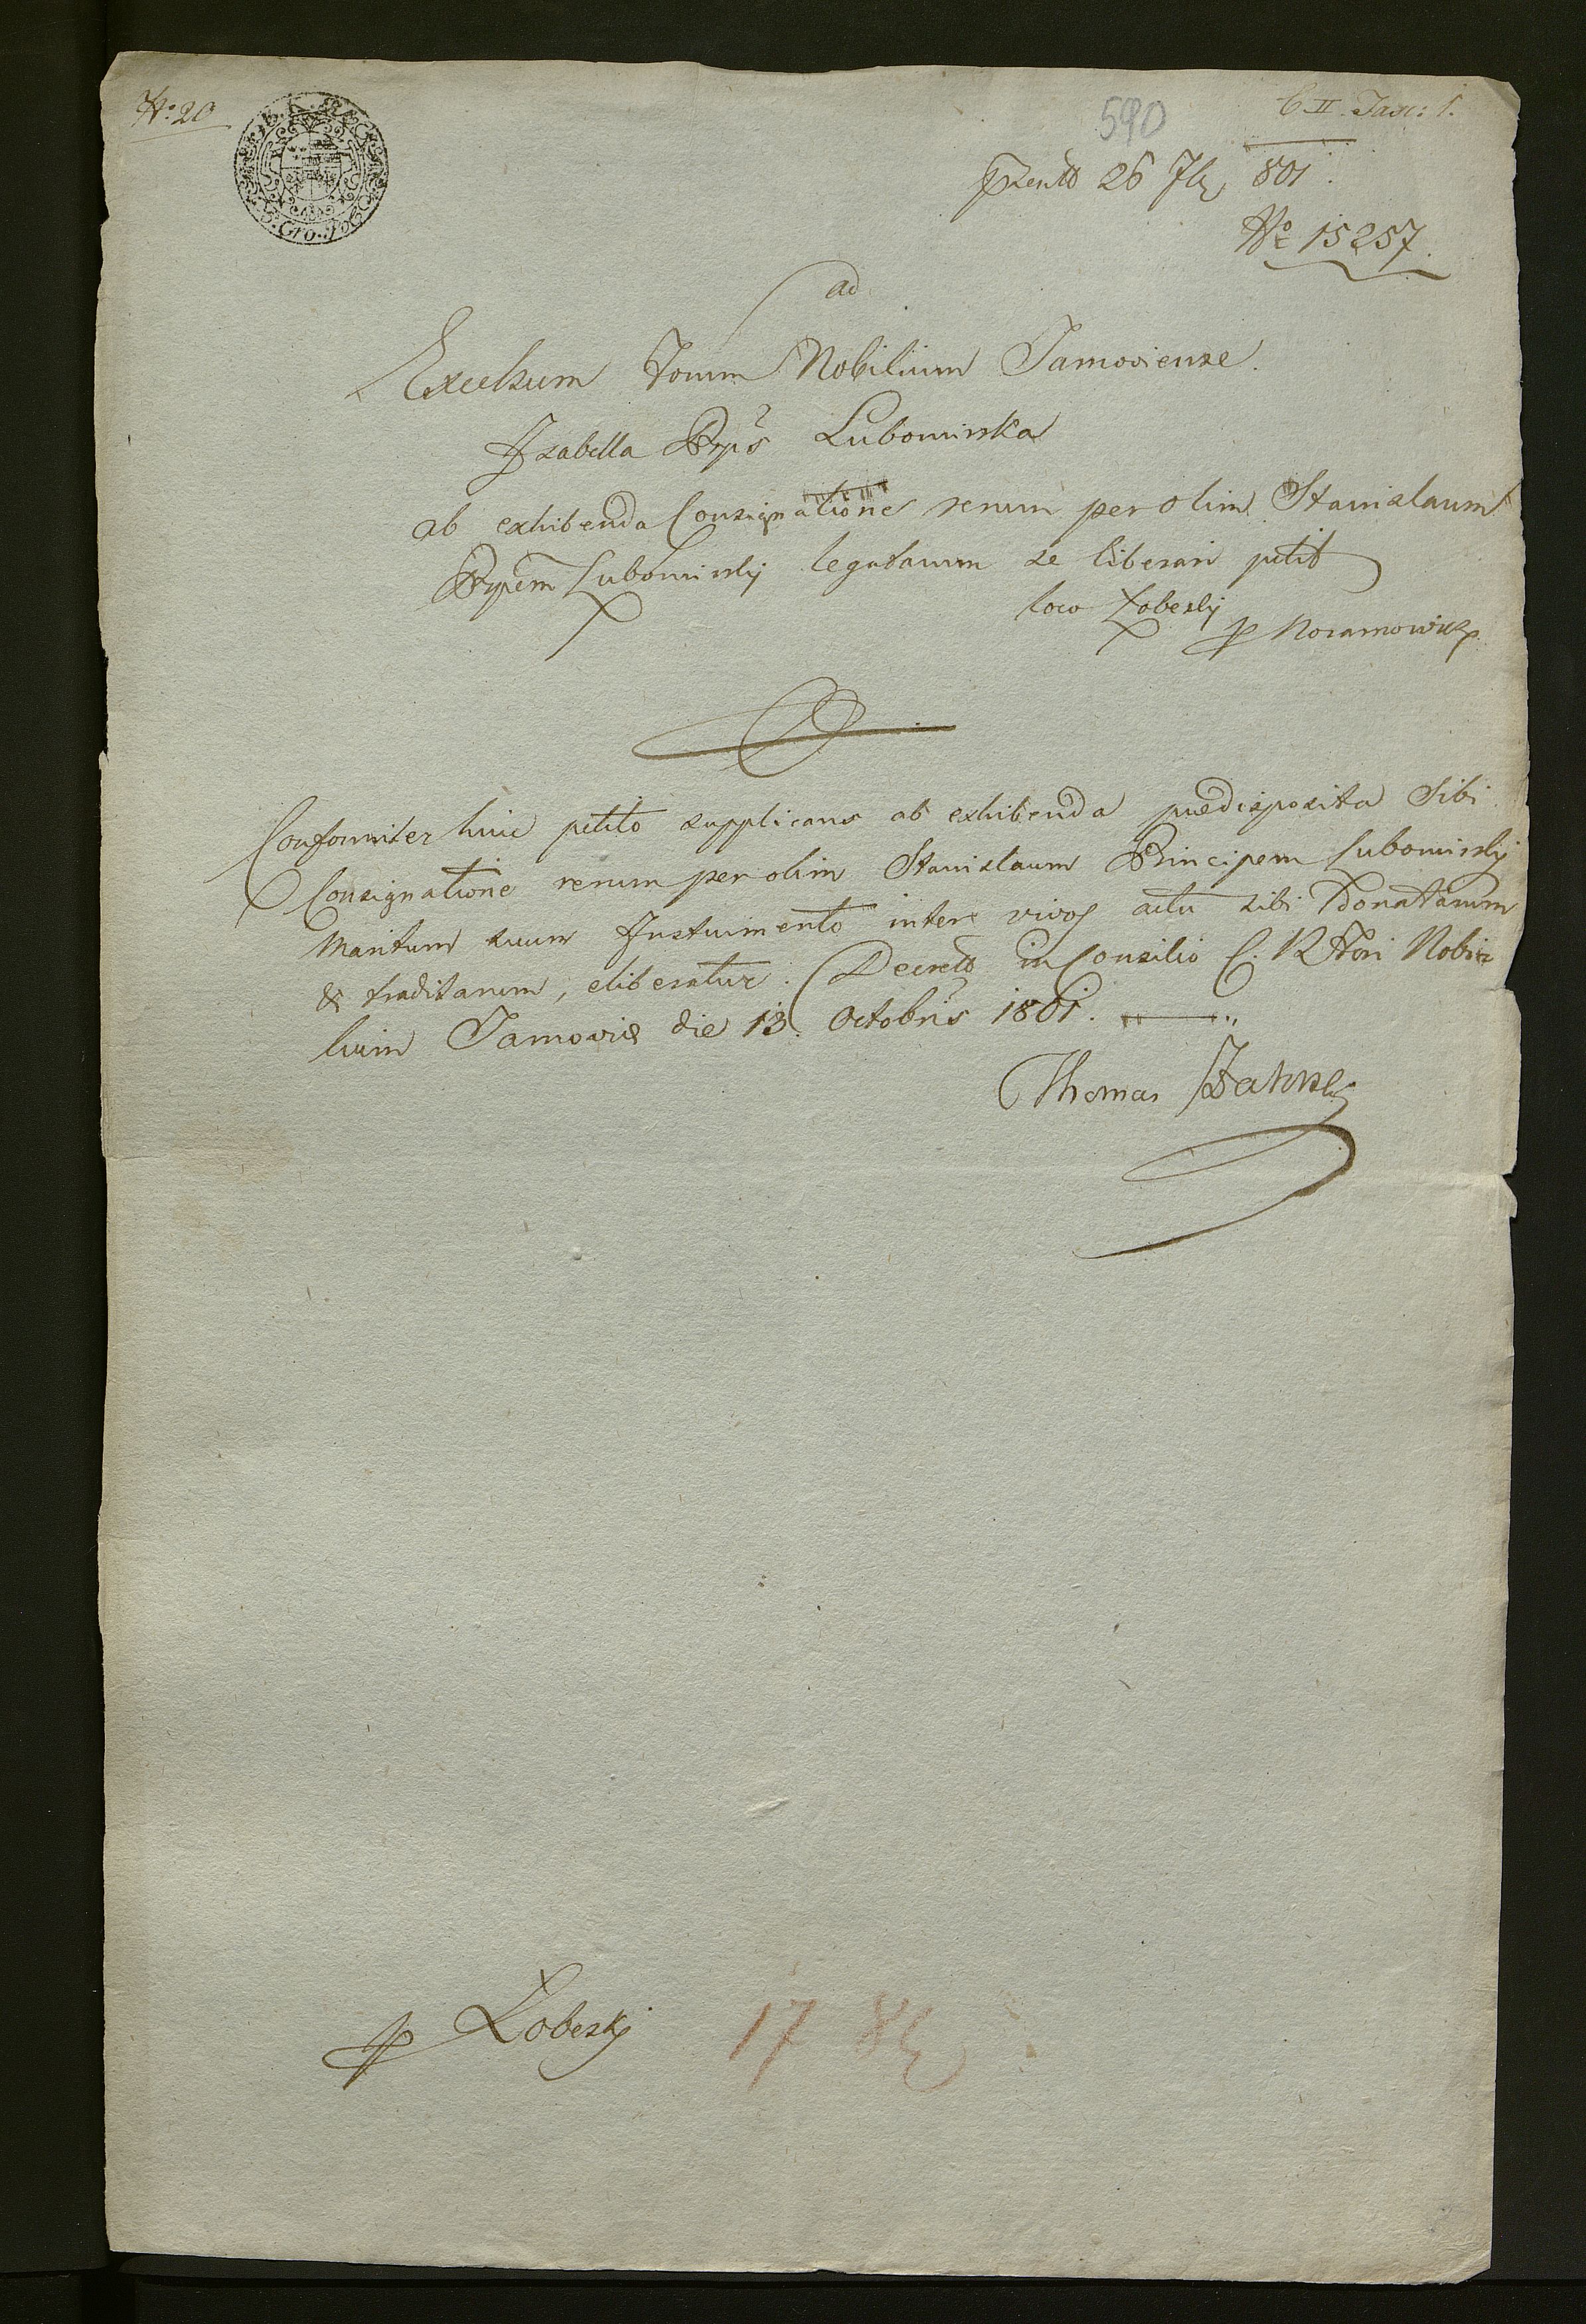 No: 20
590
C. II. Fasc: 1.
Præsto 26 7br 801.
No 15257.
ad
Excelsum Forum Nobilium Tarnoviense.
Izabella Pryps Lubomirska
ab exhibenda Consignatione rerum per olim Stanislaum
Prypem Lubomirsky legatarum se liberari petit
loco Łobesky
Conformiter huic petito supplicans ab exhibenda prædisposita sibi
Consignatione rerum per olim Stanislaum Principem Lubomirsky
Maritum suum Instrumento inter vivos actu sibi Donatarum
& traditarum, eliberatur. Decreto in Consilio C. R. Fori Nobi=
lium Tarnoviæ die 13. Octobris 1801.
Thomas
Łobesky
17 8br